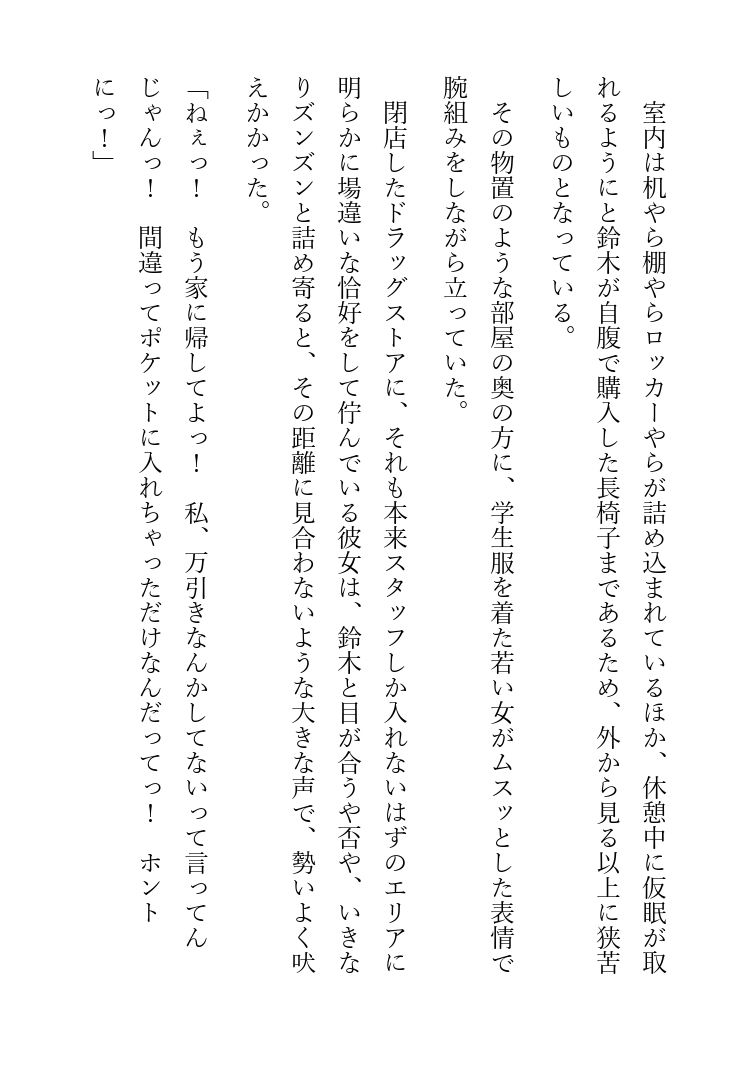 室内は机やら棚やらロッカーやらが詰め込まれているほか、休憩中に仮眠が取
れるようにと鈴木が自腹で購入した長椅子まであるため、外から見る以上に狭苦
しいものとなっている。
その物置のような部屋の奥の方に、学生服を着た若い女がムスッとした表情で
腕組みをしながら立っていた。
閉店したドラッグストアに、それも本来スタッフしか入れないはずのエリアに
明らかに場違いな恰好をして佇んでいる彼女は、鈴木と目が合うや否や、いきな
りズンズンと詰め寄ると、その距離に見合わないような大きな声で、勢いよく吠
えかかった。
「ねぇっ！　もう家に帰してよっ！　私、万引きなんかしてないって言ってん
じゃんっ！　間違ってポケットに入れちゃっただけなんだってっ！　ホント
にっ！」